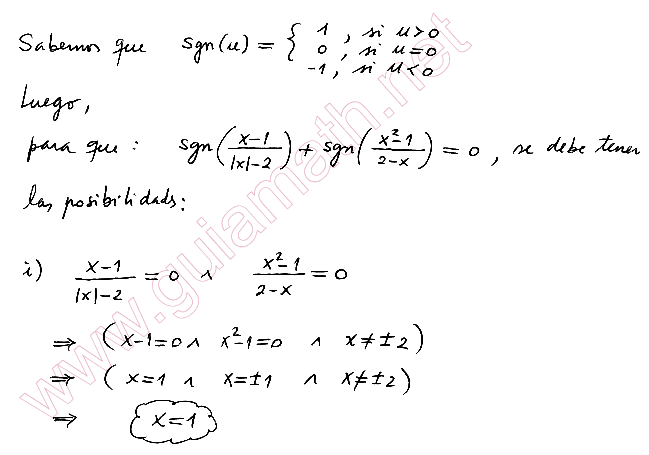 Sabemos que sgn(u) = { 1, si u>0
0, si u=0
-1, si u<0
Luego,
para que: sgn((x-1)/(|x|-2)) + sgn((x²-1)/(2-x)) = 0, se debe tener
las posibilidads:
i) (x-1)/(|x|-2) = 0 ∧ (x²-1)/(2-x) = 0
⇒ (x-1=0 ∧ x²-1=0 ∧ x≠±2)
⇒ (x=1 ∧ x=±1 ∧ x≠±2)
⇒ x=1
www.guiamath.net